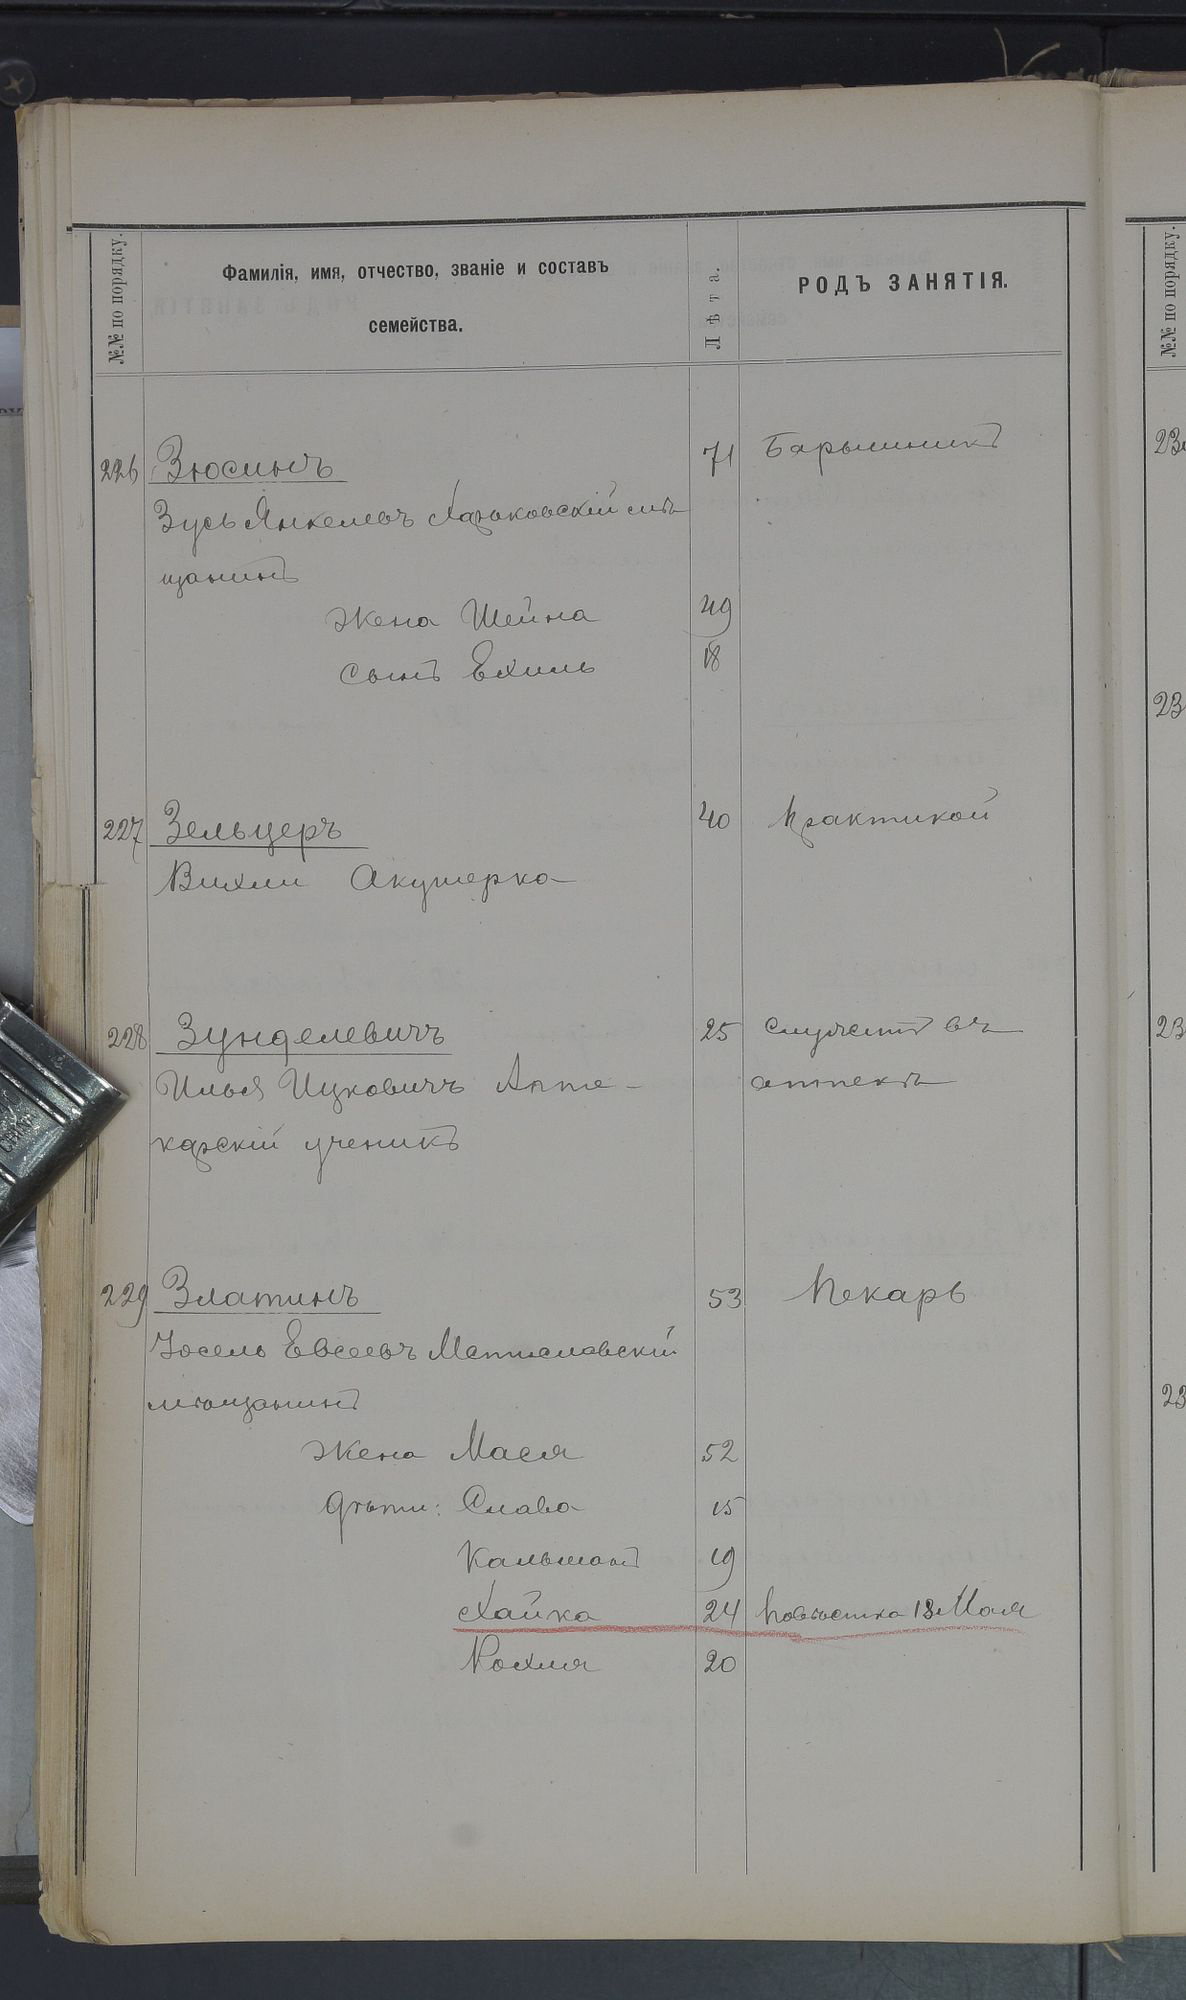 №№ по порядку.
Фамилія, имя, отчество, званіе и составъ
семейства.
Лѣта.
РОДЪ ЗАНЯТІЯ.
№№ по порядку.
226 Зюсинъ 71 Барышникъ
Зусь Янкелевъ Харьковскій мѣ
щанинъ
Жена Шейна 49
Сынъ Ехиль 18
227 Зельцеръ 40 Практикой
Вихли Акушерка
228 Зунделевичъ 25 Служитъ въ
Илья Ицковичъ Апте- аптекѣ
карскій ученикъ
229 Златинъ 53 Пекарь
Іосель Евсеевъ Мстиславскій
мѣщанинъ
Жена Мася 52
Дѣти: Слава 15
Кальманъ 19
Хайка 24 Повѣстка 18 Мая
Рохля 20
23
23
23